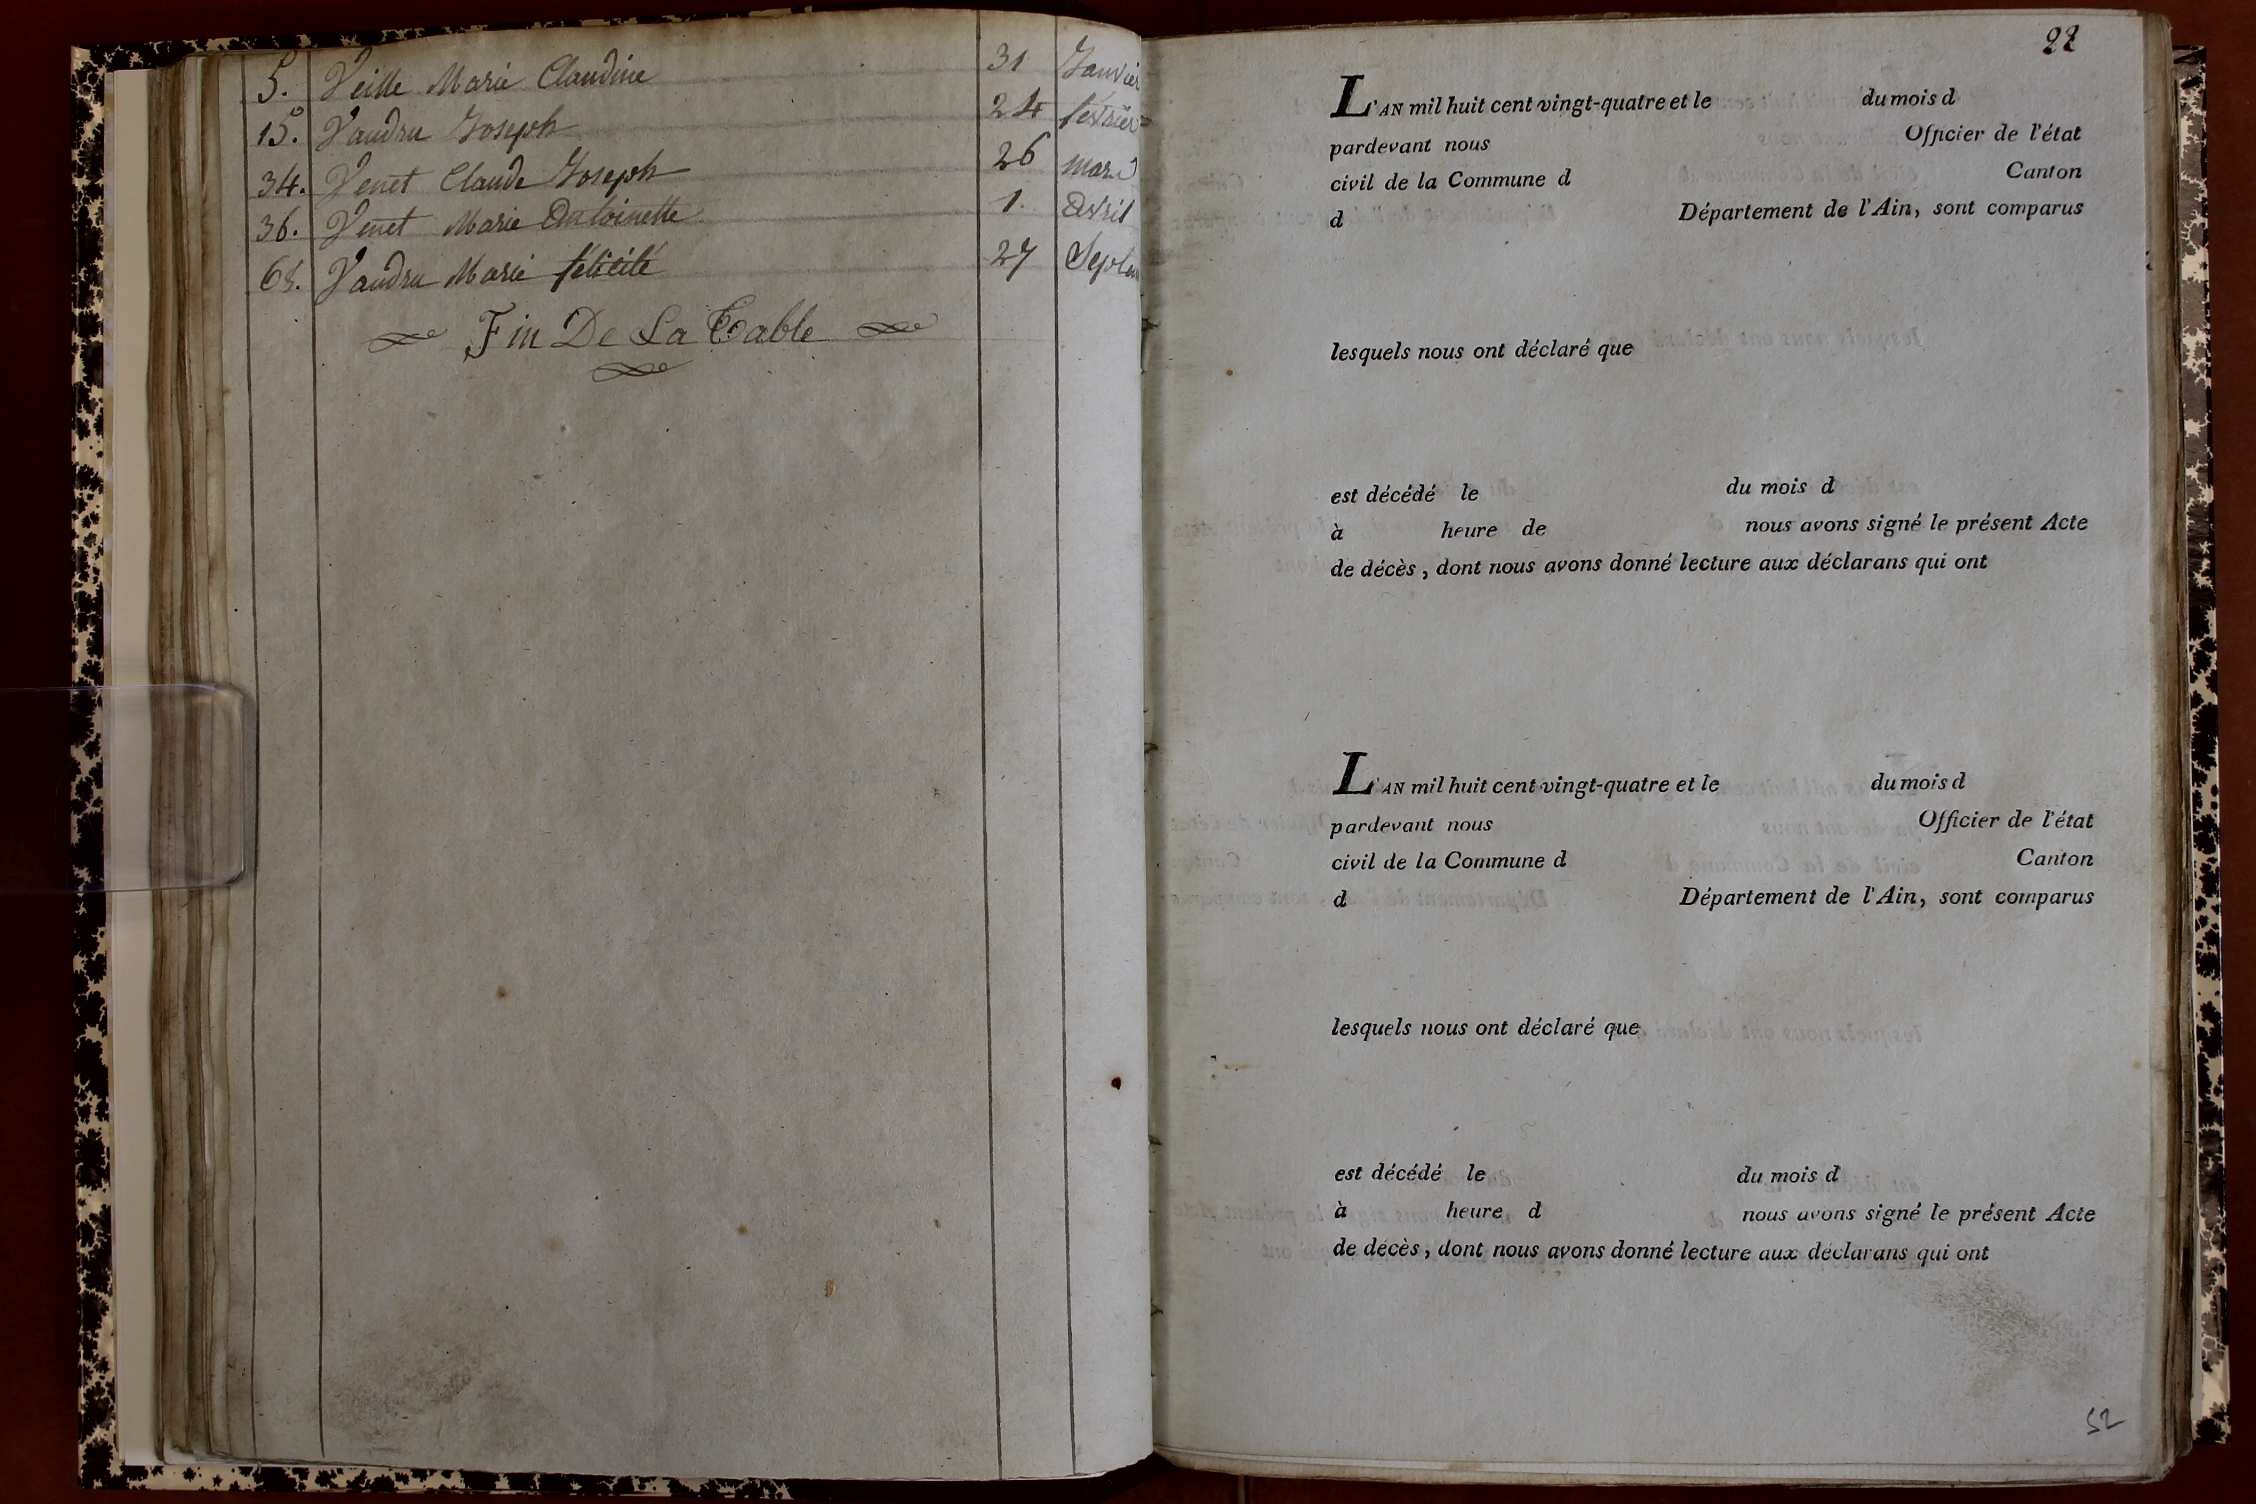 5. Veille Marie Claudine 31 Janvier
15. Vaudru Joseph 24 fevrier
34. Venet Claude Joseph 26 mars
36. Venet Marie Antoinette 1. Avril
68. Vaudru Marie félicité 27 Septem
Fin De La Table
22
L'AN mil huit cent vingt-quatre et le du mois d
pardevant nous Officier de l'état
civil de la Commune d Canton
d Département de l'Ain, sont comparus
lesquels nous ont déclaré que
est décédé le du mois d
à heure de nous avons signé le présent Acte
de décès, dont nous avons donné lecture aux déclarans qui ont
L'AN mil huit cent vingt-quatre et le du mois d
pardevant nous Officier de l'état
civil de la Commune d Canton
d Département de l'Ain, sont comparus
lesquels nous ont déclaré que
est décédé le du mois d
à heure d nous avons signé le présent Acte
de décès, dont nous avons donné lecture aux déclarans qui ont
52